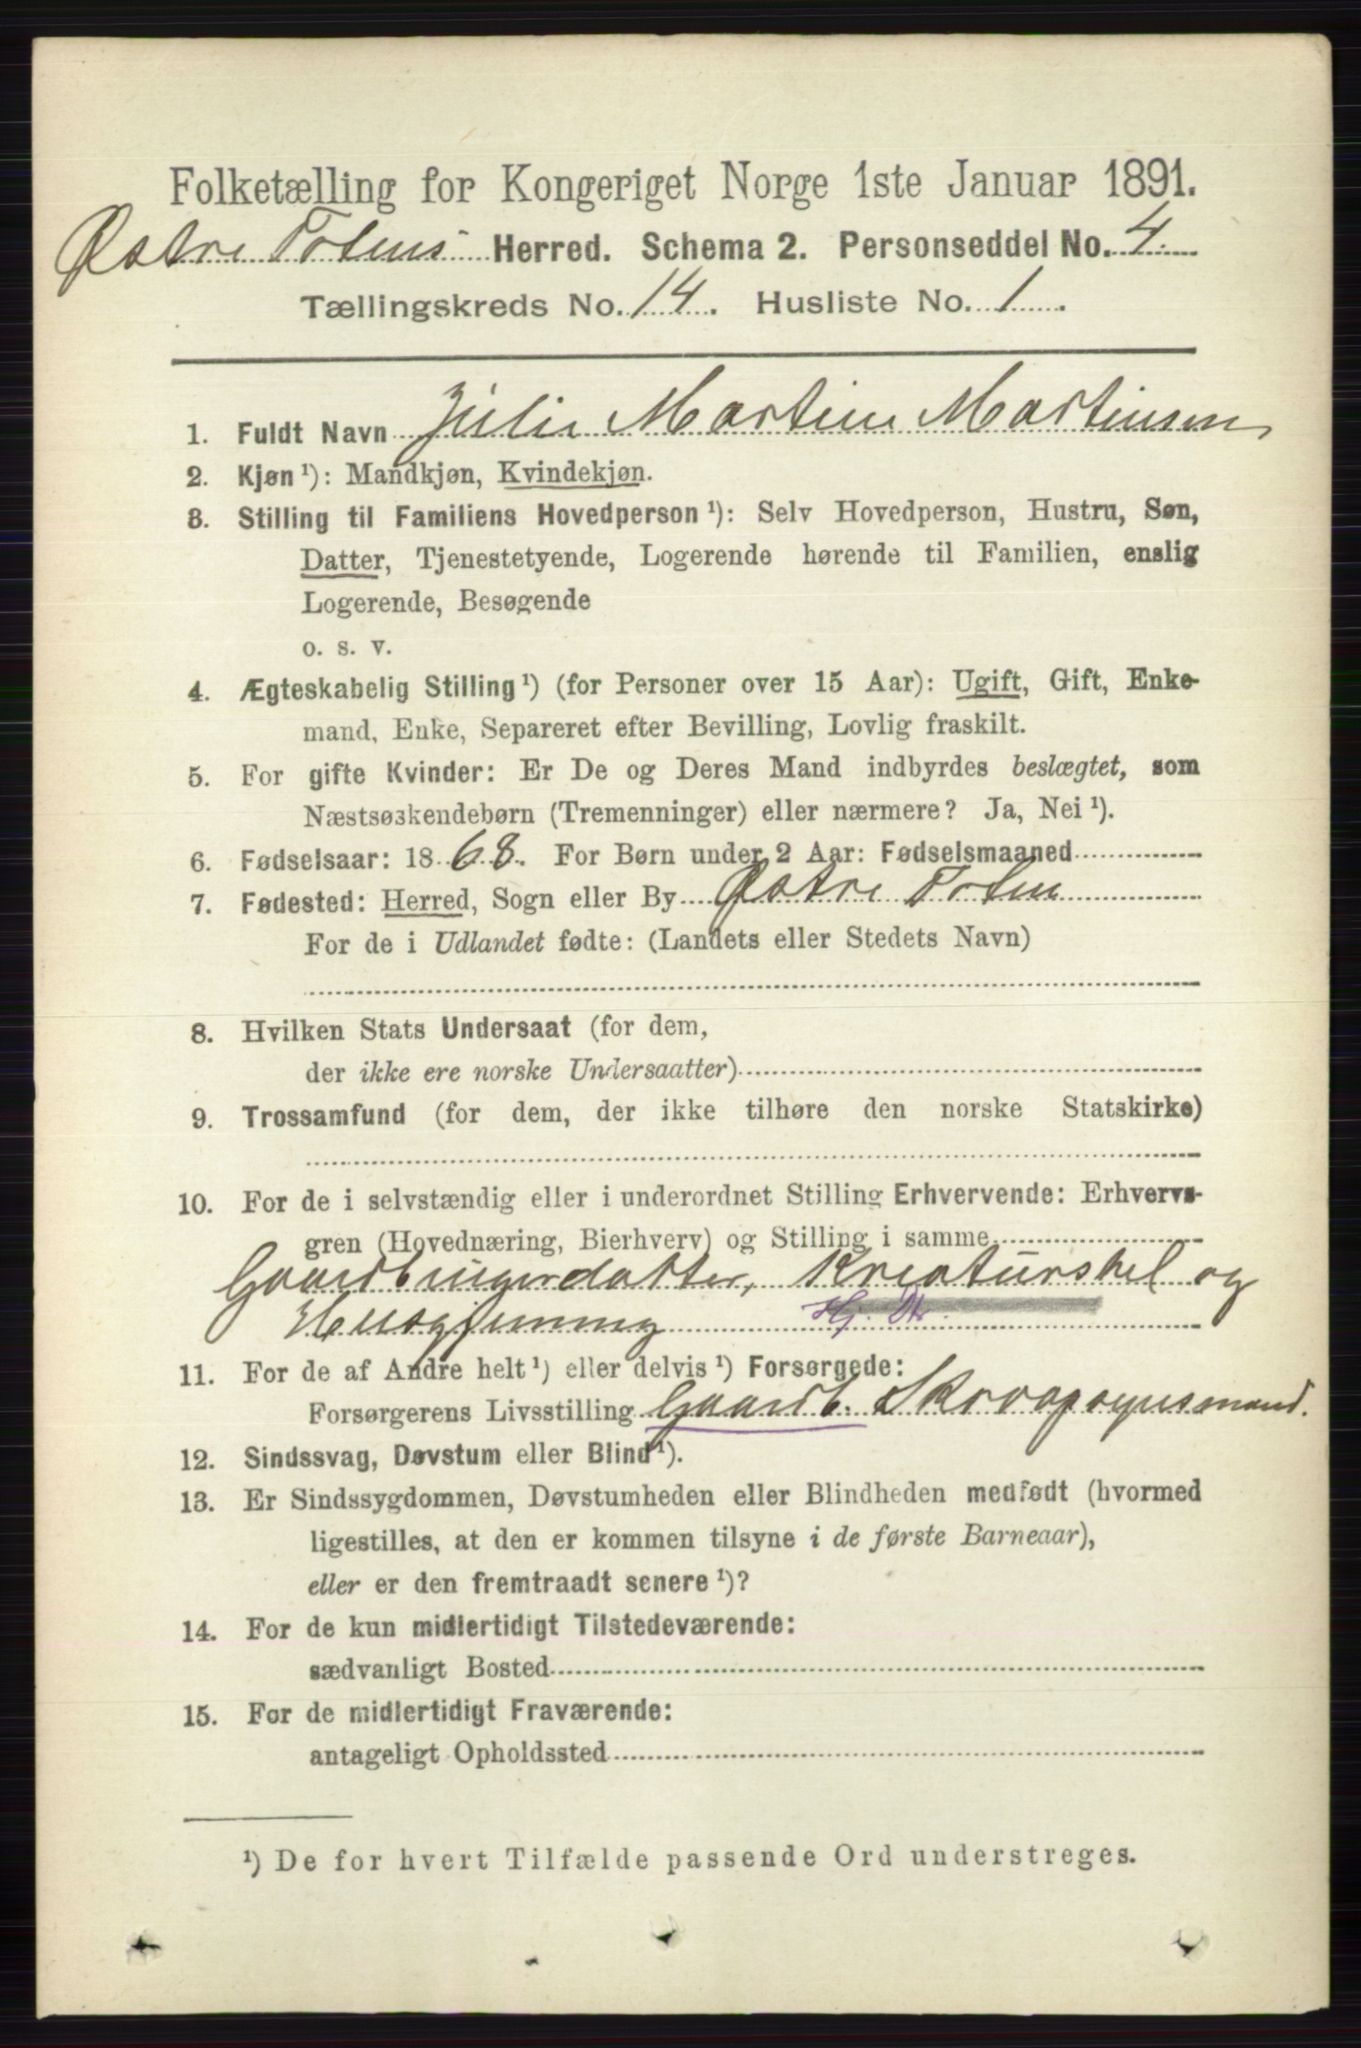 Folketælling for Kongeriget Norge 1ste Januar 1891.
Østre Totens Herred. Schema 2. Personseddel No. 4.
Tællingskreds No. 14. Husliste No. 1
1. Fuldt Navn Julie Martine Martinsen
2. Kjøn ¹): Mandkjøn, Kvindekjøn.
3. Stilling til Familiens Hovedperson ¹): Selv Hovedperson, Hustru, Søn,
Datter, Tjenestetyende, Logerende hørende til Familien, enslig
Logerende, Besøgende
o. s. v.
4. Ægteskabelig Stilling ¹) (for Personer over 15 Aar): Ugift, Gift, Enke-
mand, Enke, Separeret efter Bevilling, Lovlig fraskilt.
5. For gifte Kvinder: Er De og Deres Mand indbyrdes beslægtet, som
Næstsøskendebørn (Tremenninger) eller nærmere? Ja, Nei ¹).
6. Fødselsaar: 1868. For Børn under 2 Aar: Fødselsmaaned
7. Fødested: Herred, Sogn eller By Østre Toten
For de i Udlandet fødte: (Landets eller Stedets Navn)
8. Hvilken Stats Undersaat (for dem,
der ikke ere norske Undersaatter)
9. Trossamfund (for dem, der ikke tilhøre den norske Statskirke)
10. For de i selvstændig eller i underordnet Stilling Erhvervende: Erhvervs-
gren (Hovednæring, Bierhverv) og Stilling i samme
Gaardbrugerdatter, Kreaturstel og
Husgjerning Hj. Dtr.
11. For de af Andre helt ¹) eller delvis ¹) Forsørgede:
Forsørgerens Livsstilling Gaardb.
12. Sindssvag, Døvstum eller Blind ¹).
13. Er Sindssygdommen, Døvstumheden eller Blindheden medfødt (hvormed
ligestilles, at den er kommen tilsyne i de første Barneaar),
eller er den fremtraadt senere ¹)?
14. For de kun midlertidigt Tilstedeværende:
sædvanligt Bosted
15. For de midlertidigt Fraværende:
antageligt Opholdssted
¹) De for hvert Tilfælde passende Ord understreges.